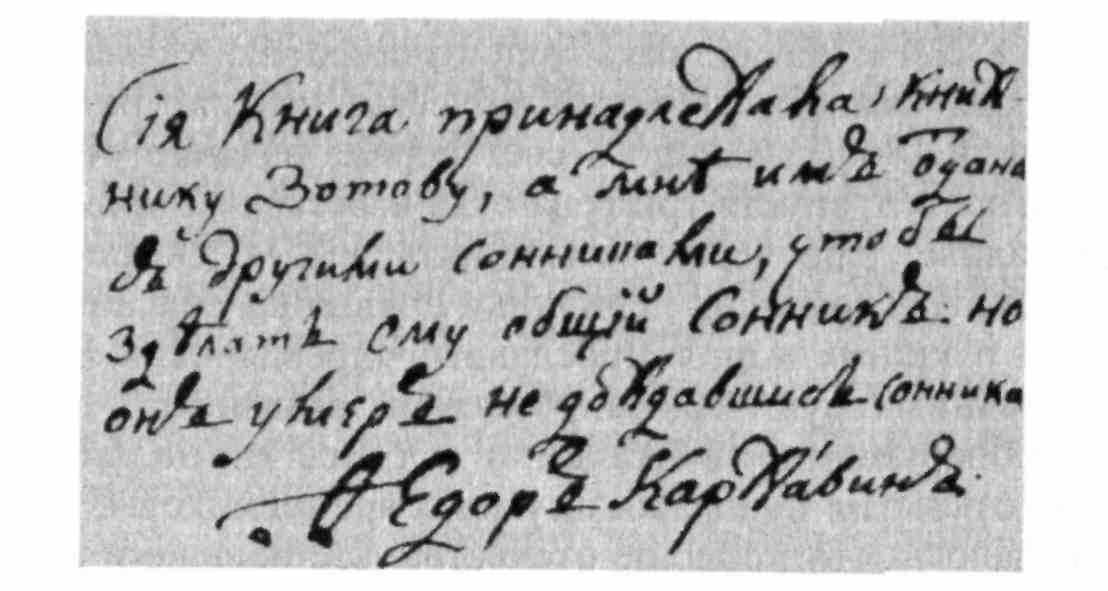 Сія Книга принадлежала книж-
нику Зотову, а мнѣ имъ ѿдана
съ другими сонниками, чтобы
здѣлать ему общій Сонникъ: но
онъ умеръ не дождавшись сонника
Ѳедоръ Каржавинъ.